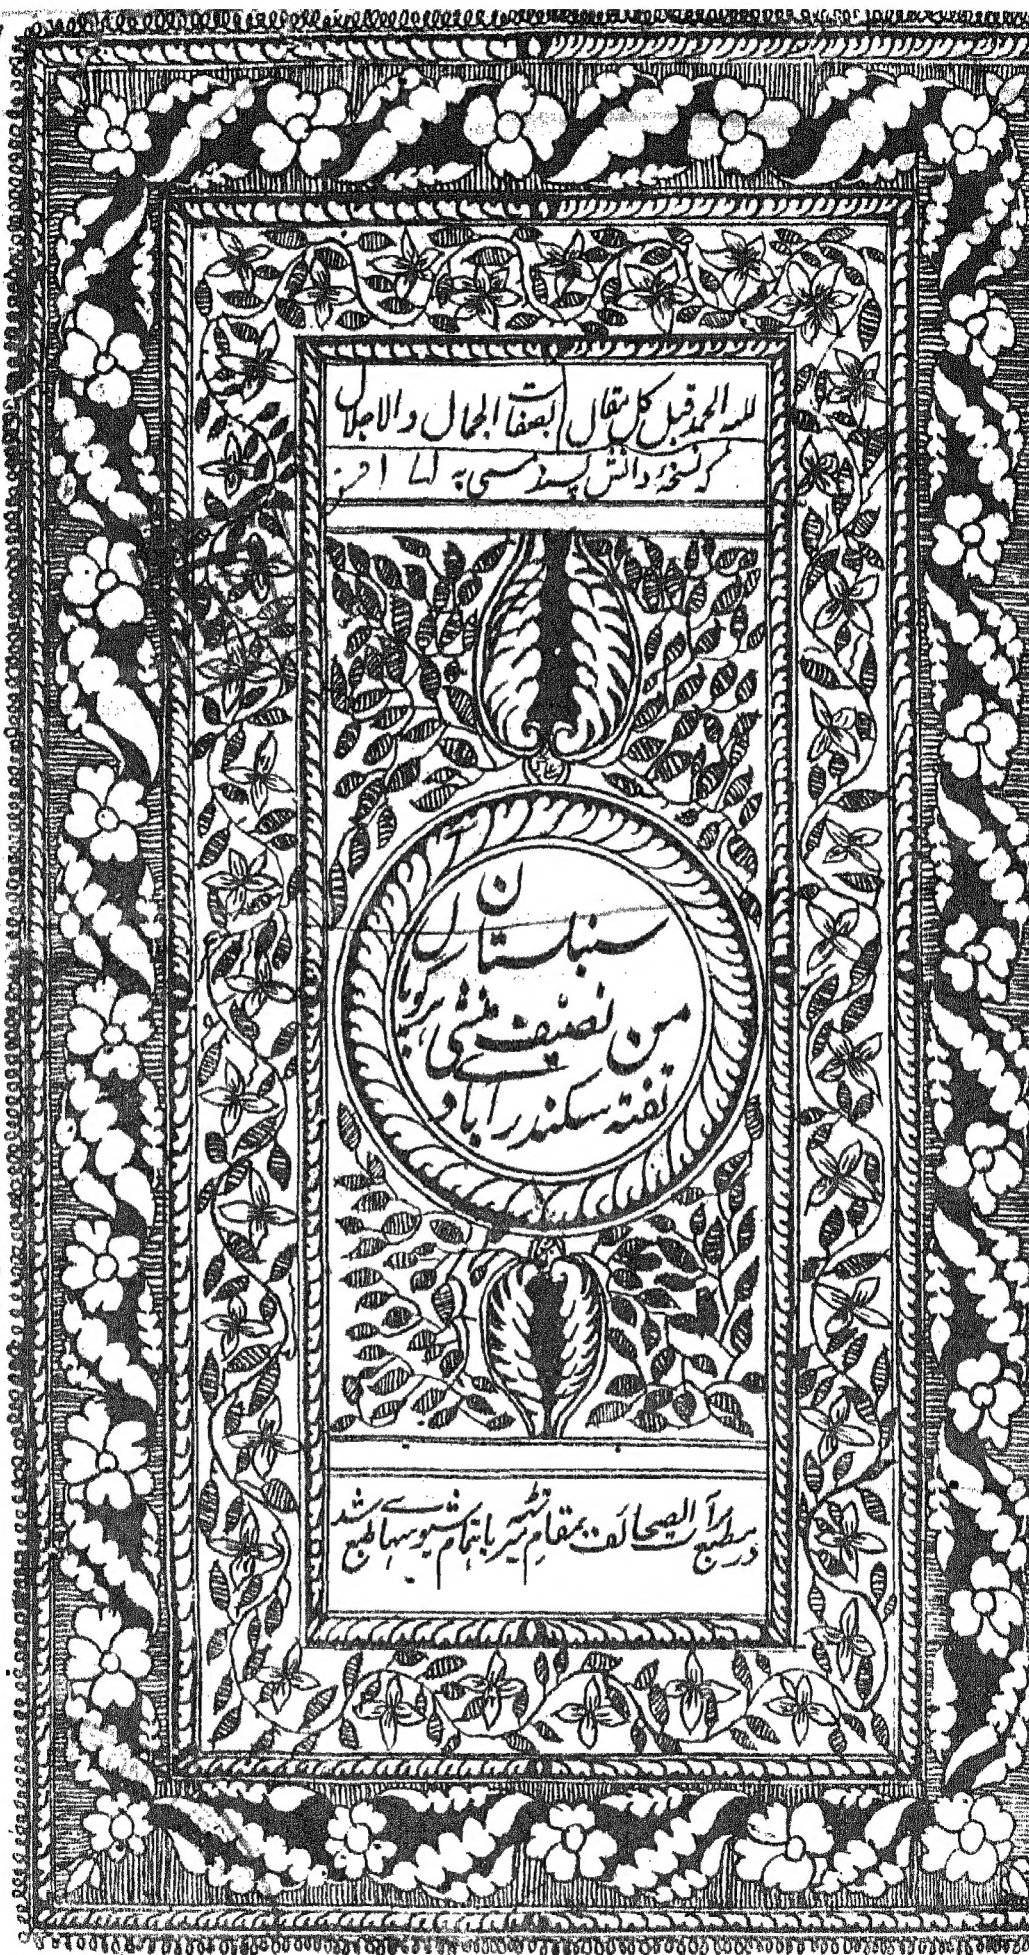 لله الحمد قبل كل مقال بصفات الجمال والاجلال
که نسخهٔ دانش پسند مسمی به
سنبلستان
من تصنیف منشی هرگوپال
تفته سکندرآباد
در مطبع مرآت الصحائف بمقام میرٹھ باہتمام شیو سہای طبع شد